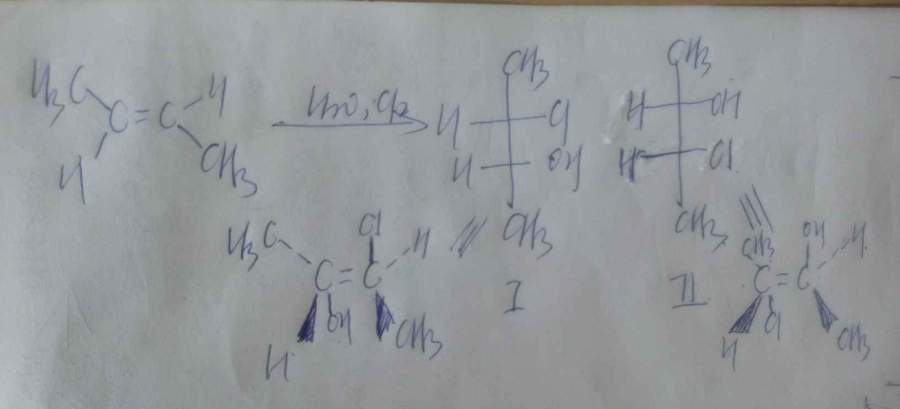 H3C H
C=C
H CH3
H2O, Cl2
CH3
H Cl
H OH
CH3
I
CH3
H OH
H Cl
CH3
II
H3C Cl H
C=C
H OH CH3
CH3 OH H
C=C
H Cl CH3